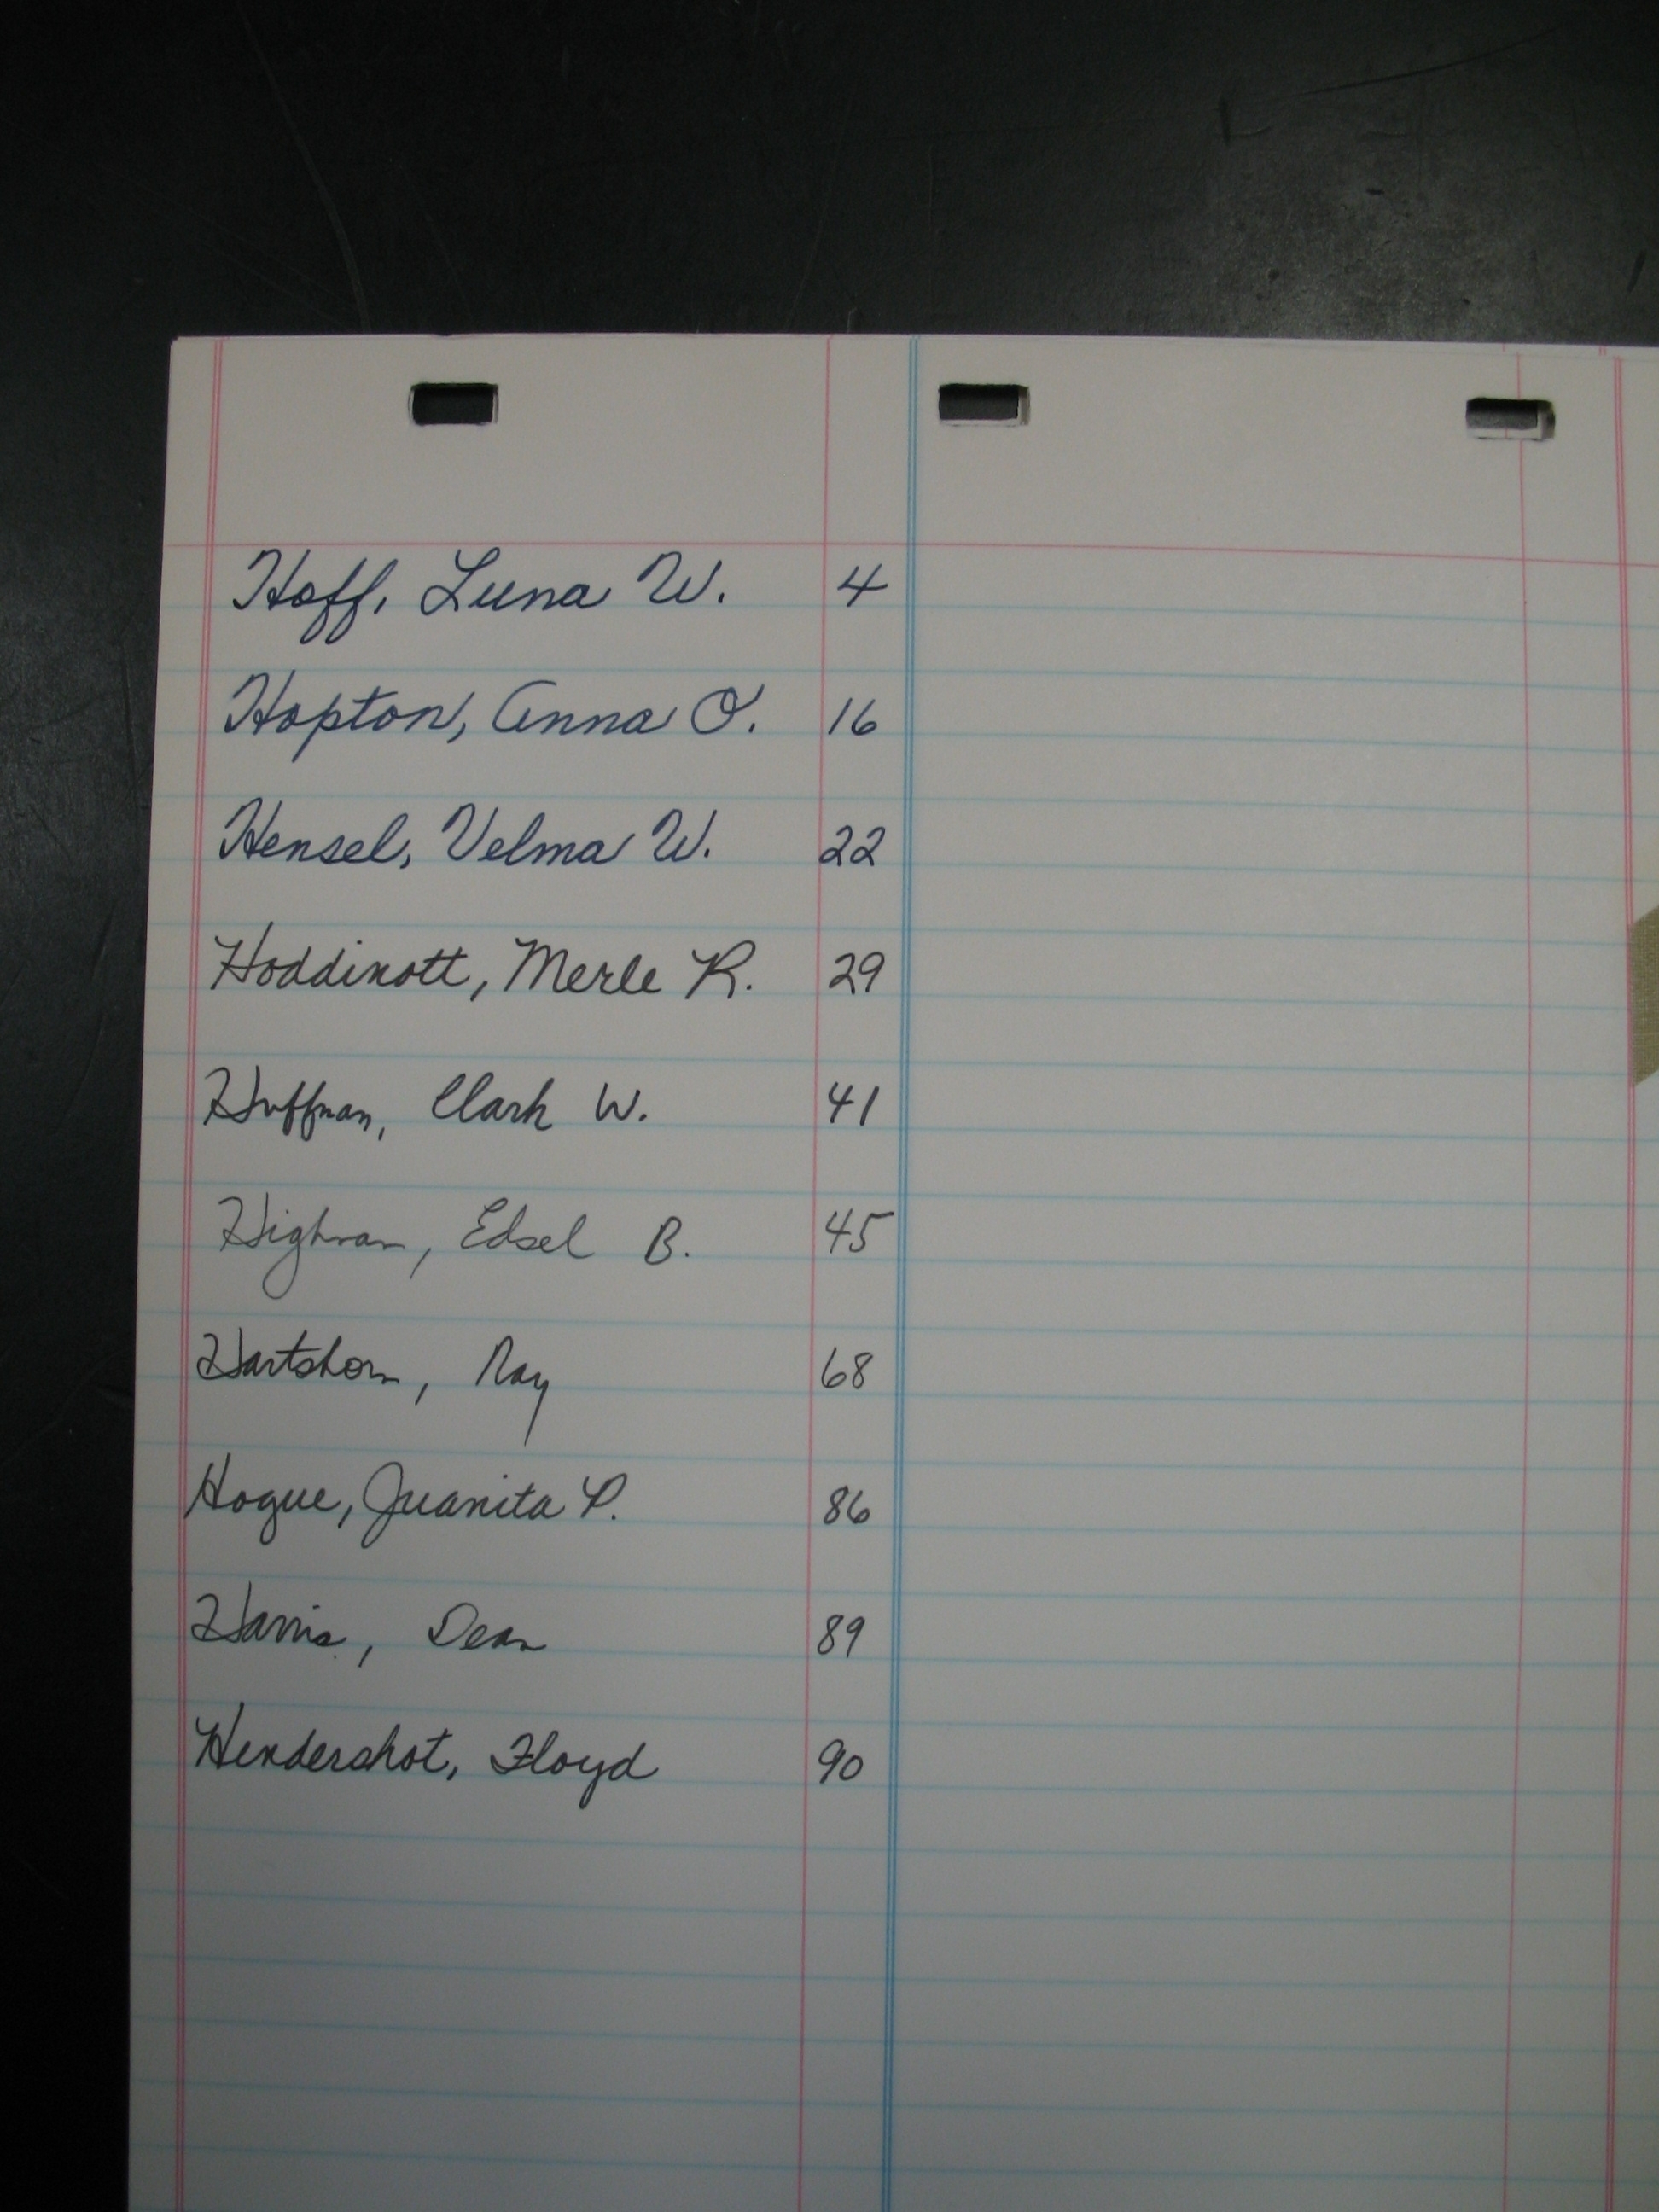 Hoff, Luna W. 4
Hopton, Anna O. 16
Hensel, Velma W. 22
Hoddinott, Merle R. 29
Huffman, Clark W. 41
Highman, Edsel B. 45
Hartshorn, Ray 68
Hogue, Juanita P. 86
Harris, Dean 89
Hendershot, Floyd 90